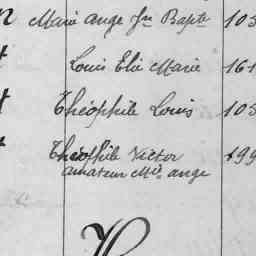 n Marie ange Jn Bapte 103
t Louis Elie Marie 161
t Théophile Louis 105
t Théophile Victor 199
amateur Mie ange
H